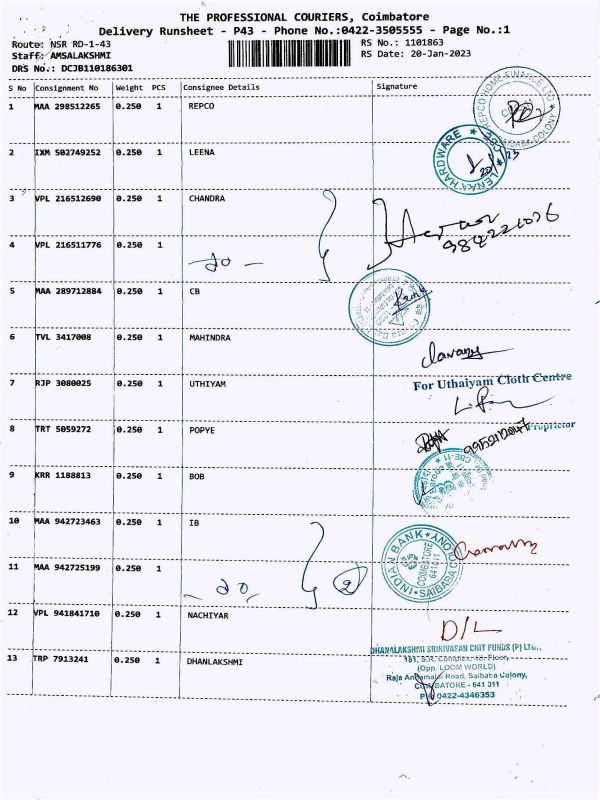 THE PROFESSIONAL COURIERS, Coimbatore
Delivery Runsheet - P43 - Phone No.:0422-3505555 - Page No.:1
Route: NSR RD-1-43
RS No.: 1101863
Staff: AMSALAKSHMI
RS Date: 20-Jan-2023
DRS No.: DCJB110186301
S No Consignment No Weight PCS Consignee Details Signature
1 MAA 298512265 0.250 1 REPCO
REPCO HOME FINANCE LTD
SAIBABA COLONY
2 IXM 502749252 0.250 1 LEENA
HARDWARE
CBE
3 VPL 216512690 0.250 1 CHANDRA
4 VPL 216511776 0.250 1
5 MAA 289712884 0.250 1 CB
6 TVL 3417008 0.250 1 MAHINDRA
7 RJP 3080025 0.250 1 UTHIYAM
For Uthaiyam Cloth Centre
Proprietor
8 TRT 5059272 0.250 1 POPYE
9 KRR 1188813 0.250 1 BOB
CBE-11
10 MAA 942723463 0.250 1 IB
INDIAN BANK
COIMBATORE
641011
SAIBABA COLONY
11 MAA 942725199 0.250 1
2
12 VPL 941841710 0.250 1 NACHIYAR
D/L
13 TRP 7913241 0.250 1 DHANLAKSHMI
DHANALAKSHMI SRINIVASAN CHIT FUNDS (P) LTD.,
(Opp. LOOM WORLD)
Road, Saibaba Colony,
COIMBATORE - 641 011
0422-4346353